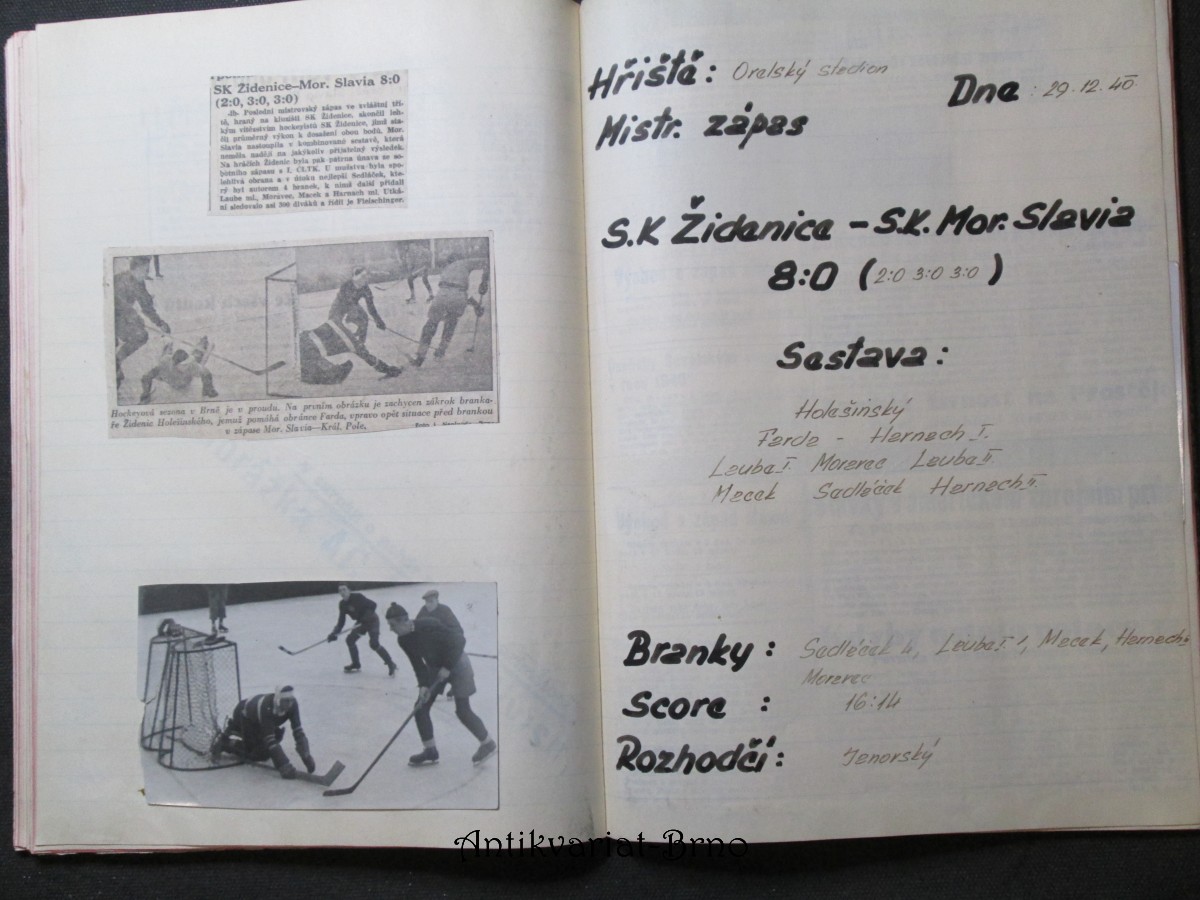 SK Židenice–Mor. Slavia 8:0
(2:0, 3:0, 3:0)
-lb- Poslední mistrovský zápas ve zvláštní tří-
tě, hraný na kluzišti SK Židenice, skončil leh-
kým vítězstvím hockeyistů SK Židenice, jimž sta-
čil průměrný výkon k dosažení obou bodů. Mor.
Slavia nastoupila v kombinované sestavě, která
neměla naději na jakýkoliv přijatelný výsledek.
Na hráčích Židenic byla pak patrna únava ze so-
botního zápasu s I. ČLTK. U mužstva byla spo-
lehlivá obrana a v útoku nejlepší Sedláček, kte-
rý byl autorem 4 branek, k nimž další přidali
Laube ml., Moravec, Macek a Harnach ml. Utká-
ní sledovalo asi 800 diváků a řídil je Fleischinger.
Hockeyová sezona v Brně je v proudu. Na prvním obrázku je zachycen zákrok branka-
ře Židenic Holešinského, jemuž pomáhá obránce Farda, vpravo opět situace před brankou
v zápase Mor. Slavia—Král. Pole.
Hřiště: Orelský stadion
Dne : 29.12.40.
Mistr. zápas
S.K Židenice – S.K. Mor. Slavia
8:0 (2:0 3:0 3:0)
Sestava:
Holešinský
Farda - Harnach I.
Lauba I. Moravec Lauba II.
Macek Sadláček Harnach II.
Branky: Sadláček 4, Lauba I 1, Macek, Harnach II
Moravec
Score : 16:14
Rozhodčí: Janorský
Antikvariat-Brno